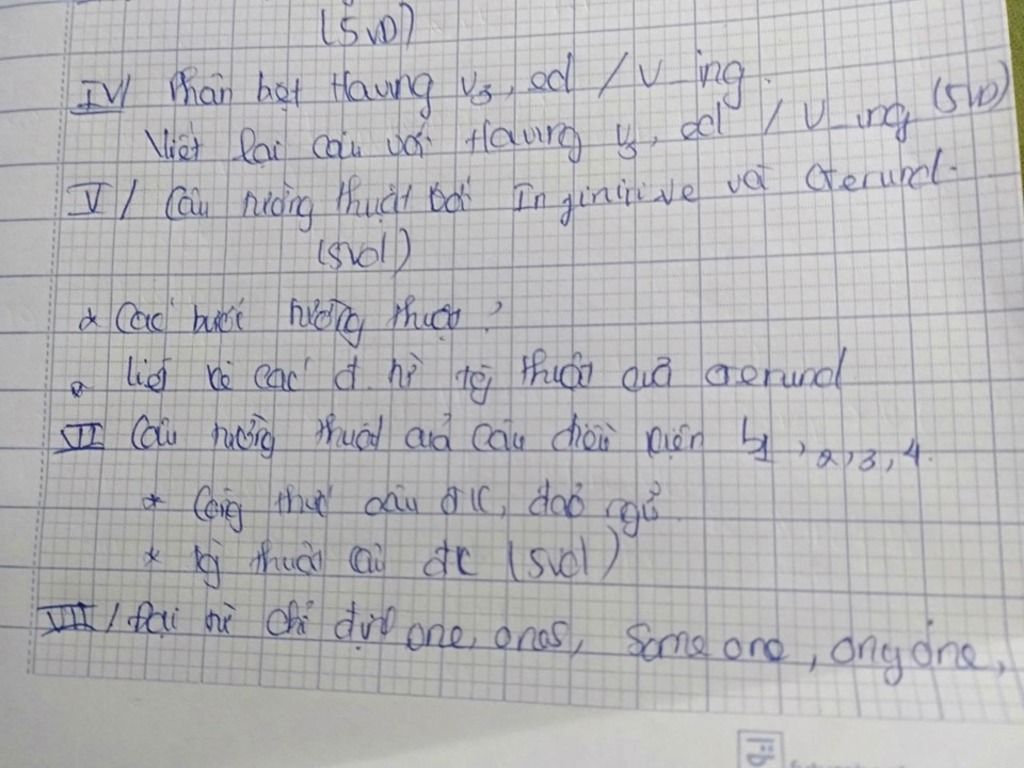 (SVD)
IV/ Phân biệt Having V3, ed / V_ing.
Viết lại câu với Having V3, ed / V_ing (SVD)
V/ Câu tường thuật với Infinitive và Gerund.
(SVD)
* Các bước tường thuật?
* thuật của Gerund
VI Câu tường thuật của câu điều kiện 1, 2, 3, 4.
* Công thức câu ĐK, đảo ngữ
* thuật câu ĐK (SVD)
VII/ Đại từ chỉ định one, ones, someone, anyone,